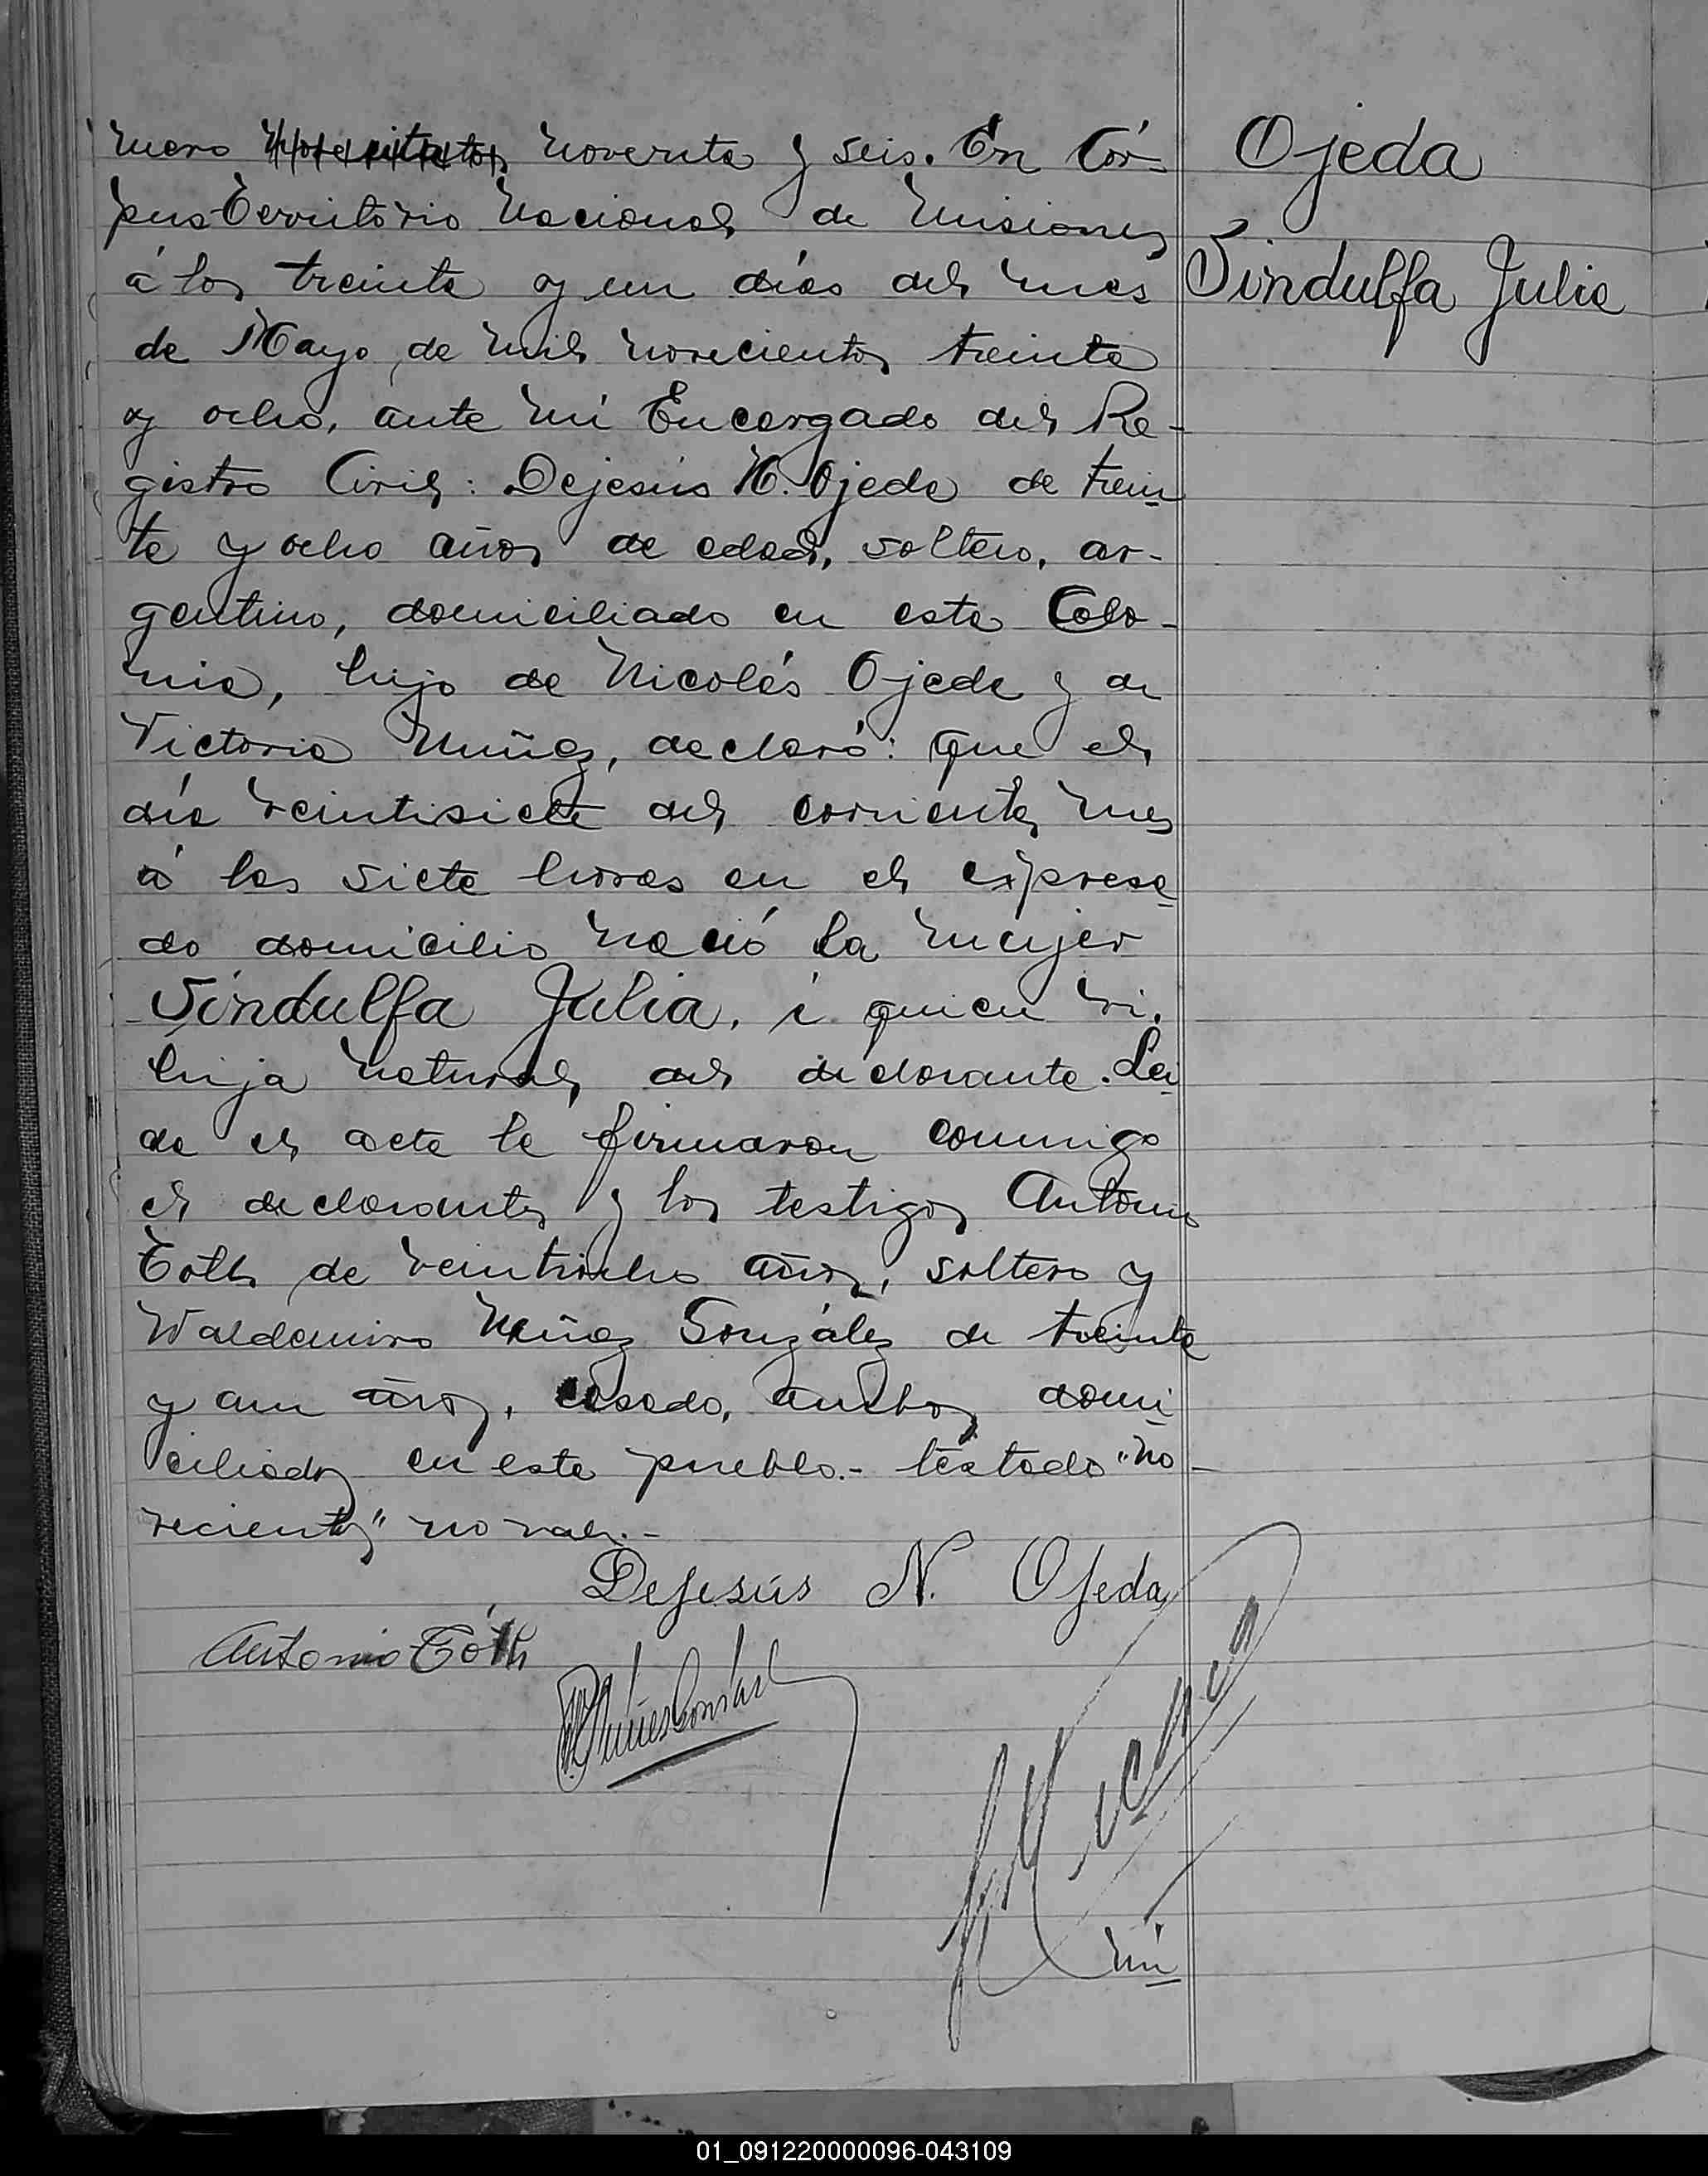 mero novecientos noventa y seis. En Cór-
pus Territorio Nacional de Misiones
á los treinta y un días del mes
de Mayo de mil novecientos treinta
y ocho, ante mi Encargado del Re-
gistro Civil: Dejesús N. Ojeda de trein
ta y ocho años de edad, soltero, ar-
gentino, domiciliado en esta Colo-
nia, hijo de Nicolás Ojeda y de
Victoria Muñoz, declaró: que el
día veintisiete del corriente mes
á las siete horas en el expresa
do domicilio nació la mujer
Sindulfa Julia, á quien vi,
hija natural del declarante. Lei
da el acta la firmaron conmigo
el declarante y los testigos Antonio
Toth de veintiocho años, soltero y
Waldemiro Núñez González de treinta
y un años, casado, ambos domi
ciliados en este pueblo.- testado "no-
vecientos" no vale.-
Dejesús N. Ojeda
Antonio Tóth
Núñes
Ojeda
Sindulfa Julia
01_091220000096-043109